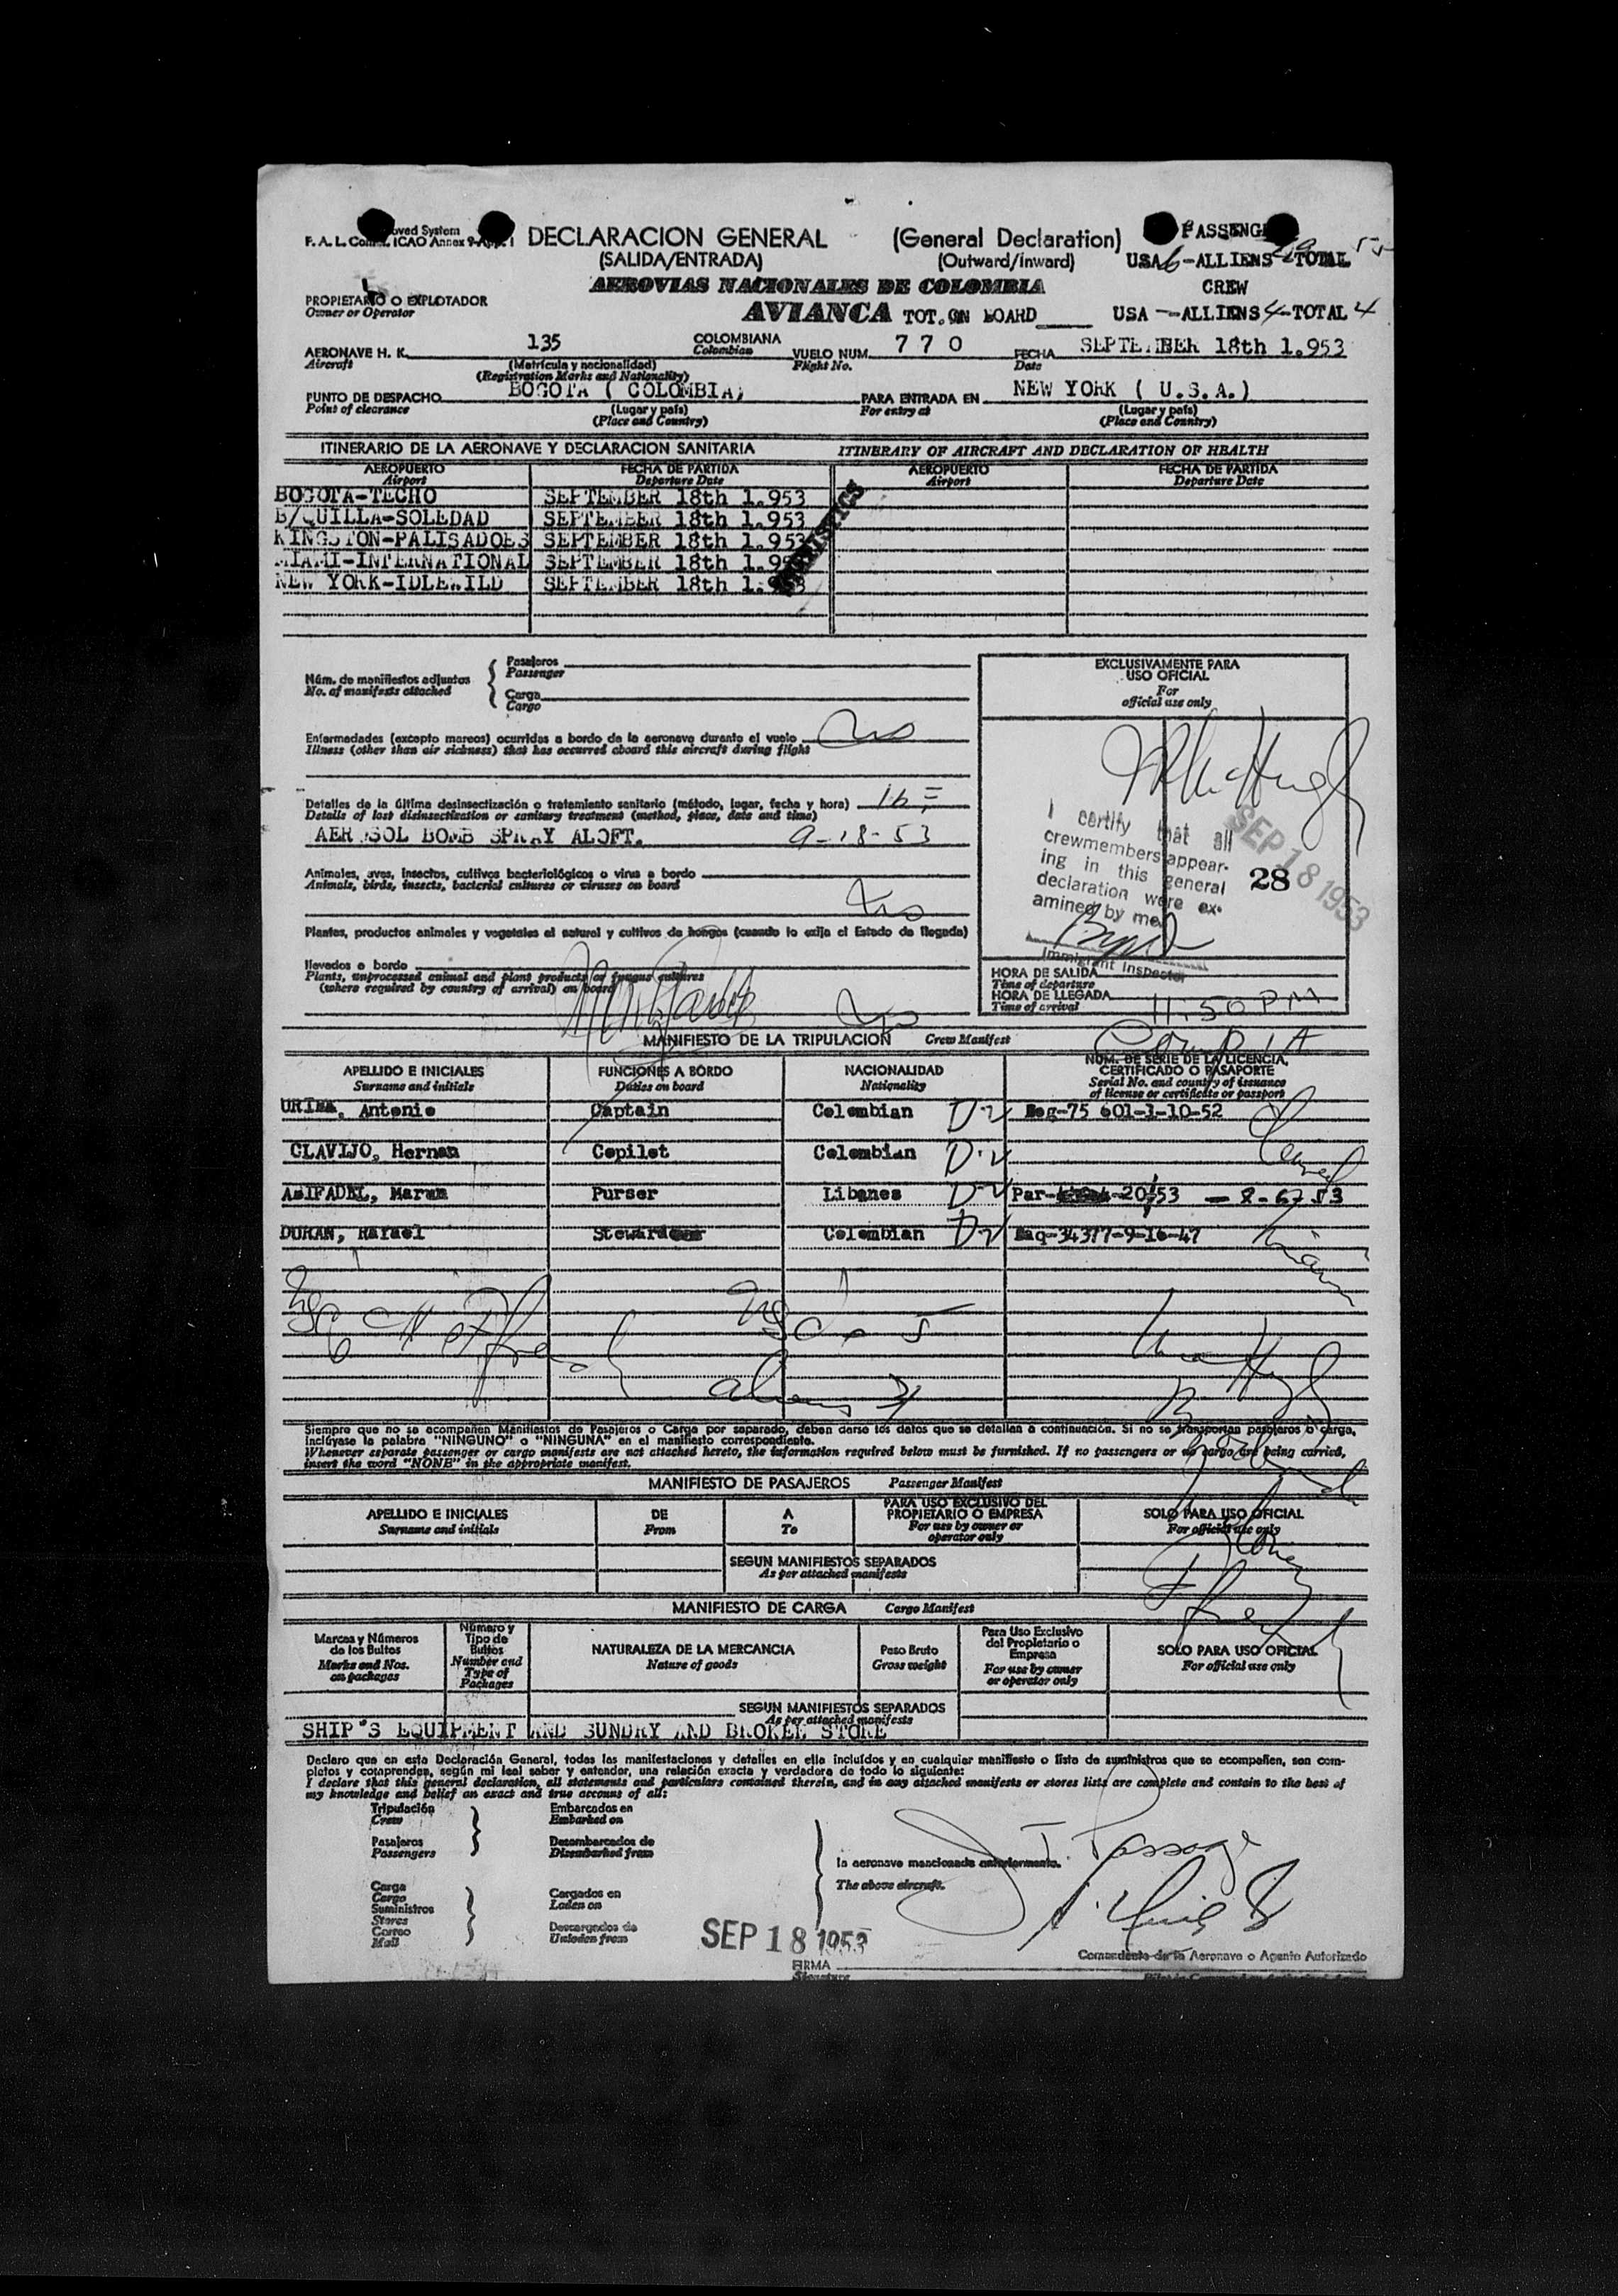 DECLARACION GENERAL (General Declaration) PASSENG
F. A. L. ICAO Annex 9
(SALIDA/ENTRADA) (Outward/Inward) USA 6-ALLIENS TOTAL
AEROVIAS NACIONALES DE COLOMBIA CREW
PROPIETARIO O EXPLOTADOR
Owner or Operator
AVIANCA TOT. ON BOARD USA - ALLIENS 4-TOTAL 4
AERONAVE H. K. 135 COLOMBIANA VUELO NUM. 7 7 0 FECHA SEPTEMBER 18th 1.953
Aircraft (Matrícula y nacionalidad) Colombian Flight No. Date
(Registration Marks and Nationality)
PUNTO DE DESPACHO BOGOTA ( COLOMBIA) PARA ENTRADA EN NEW YORK ( U.S.A.)
Point of clearance (Lugar y país) For entry at (Lugar y país)
(Place and Country) (Place and Country)
ITINERARIO DE LA AERONAVE Y DECLARACION SANITARIA ITINERARY OF AIRCRAFT AND DECLARATION OF HEALTH
AEROPUERTO FECHA DE PARTIDA AEROPUERTO FECHA DE PARTIDA
Airport Departure Date Airport Departure Date
BOGOTA-TECHO SEPTEMBER 18th 1.953
B/QUILLA-SOLEDAD SEPTEMBER 18th 1.953
KINGSTON-PALISADOES SEPTEMBER 18th 1.953
MIAMI-INTERNATIONAL SEPTEMBER 18th 1.953
NEW YORK-IDLEWILD SEPTEMBER 18th 1.953
Núm. de manifiestos adjuntos
No. of manifests attached
Pasajeros
Passenger
Carga
Cargo
EXCLUSIVAMENTE PARA
USO OFICIAL
For
official use only
Enfermedades (excepto mareos) ocurridas a bordo de la aeronave durante el vuelo No
Illness (other than air sickness) that has occurred aboard this aircraft during flight
Detalles de la última desinsectización o tratamiento sanitario (método, lugar, fecha y hora)
Details of last disinsectization or sanitary treatment (method, place, date and time)
AEROSOL BOMB SPRAY ALOFT. 9-18-53
Animales, aves, insectos, cultivos bacteriológicos o virus a bordo
Animals, birds, insects, bacterial cultures or viruses on board
No
Plantas, productos animales y vegetales al natural y cultivos de hongos (cuando lo exija el Estado de llegada)
llevados a bordo
Plants, unprocessed animal and plant products or fungus cultures
(where required by country of arrival) on board
No
I certify that all
crewmembers appear-
ing in this general
declaration were ex-
amined by me.
Immigrant Inspector
SEP 18 1953
28
HORA DE SALIDA
Time of departure
HORA DE LLEGADA
Time of arrival 11:50 PM
MANIFIESTO DE LA TRIPULACION Crew Manifest
APELLIDO E INICIALES FUNCIONES A BORDO NACIONALIDAD NUM. DE SERIE DE LA LICENCIA, CERTIFICADO O PASAPORTE
Surname and initials Duties on board Nationality Serial No. and country of issuance of license or certificate or passport
Antonio Captain Colombian Bog-75 601-1-10-52
CLAVIJO, Hernan Copilot Colombian
ABIFADEL, Marun Purser Libanes
DURAN, Rafael Steward Colombian Baq-34377-9-16-47
Siempre que no se acompañen Manifiestos de Pasajeros o Carga por separado, deben darse los datos que se detallan a continuación. Si no se transportan pasajeros o carga,
inclúyase la palabra "NINGUNO" o "NINGUNA" en el manifiesto correspondiente.
Whenever separate passenger or cargo manifests are not attached hereto, the information required below must be furnished. If no passengers or no cargo are being carried,
insert the word "NONE" in the appropriate manifest.
MANIFIESTO DE PASAJEROS Passenger Manifest
APELLIDO E INICIALES DE A PARA USO EXCLUSIVO DEL PROPIETARIO O EMPRESA SOLO PARA USO OFICIAL
Surname and initials From To For use by owner or operator only For official use only
SEGUN MANIFIESTOS SEPARADOS
As per attached manifests
MANIFIESTO DE CARGA Cargo Manifest
Marcas y Números de los Bultos Número y Tipo de Bultos NATURALEZA DE LA MERCANCIA Peso Bruto Para Uso Exclusivo del Propietario o Empresa SOLO PARA USO OFICIAL
Marks and Nos. on packages Number and Type of Packages Nature of goods Gross weight For use by owner or operator only For official use only
SEGUN MANIFIESTOS SEPARADOS
As per attached manifests
SHIP'S EQUIPMENT AND SUNDRY AND BROKEN STORE
Declaro que en esta Declaración General, todas las manifestaciones y detalles en ella incluídos y en cualquier manifiesto o lista de suministros que se acompañen, son com-
pletos y comprenden, según mi leal saber y entender, una relación exacta y verdadera de todo lo siguiente:
I declare that this general declaration, all statements and particulars contained therein, and in any attached manifests or stores lists are complete and contain to the best of
my knowledge and belief an exact and true account of all:
Tripulación Embarcados en
Crew Embarked on
Pasajeros Desembarcados de
Passengers Disembarked from
la aeronave mencionada anteriormente.
The above aircraft.
Carga
Cargo Cargados en
Suministros Laden on
Stores
Correo Descargados de
Mail Unladen from
SEP 18 1953
Comandante de la Aeronave o Agente Autorizado
FIRMA
Signature